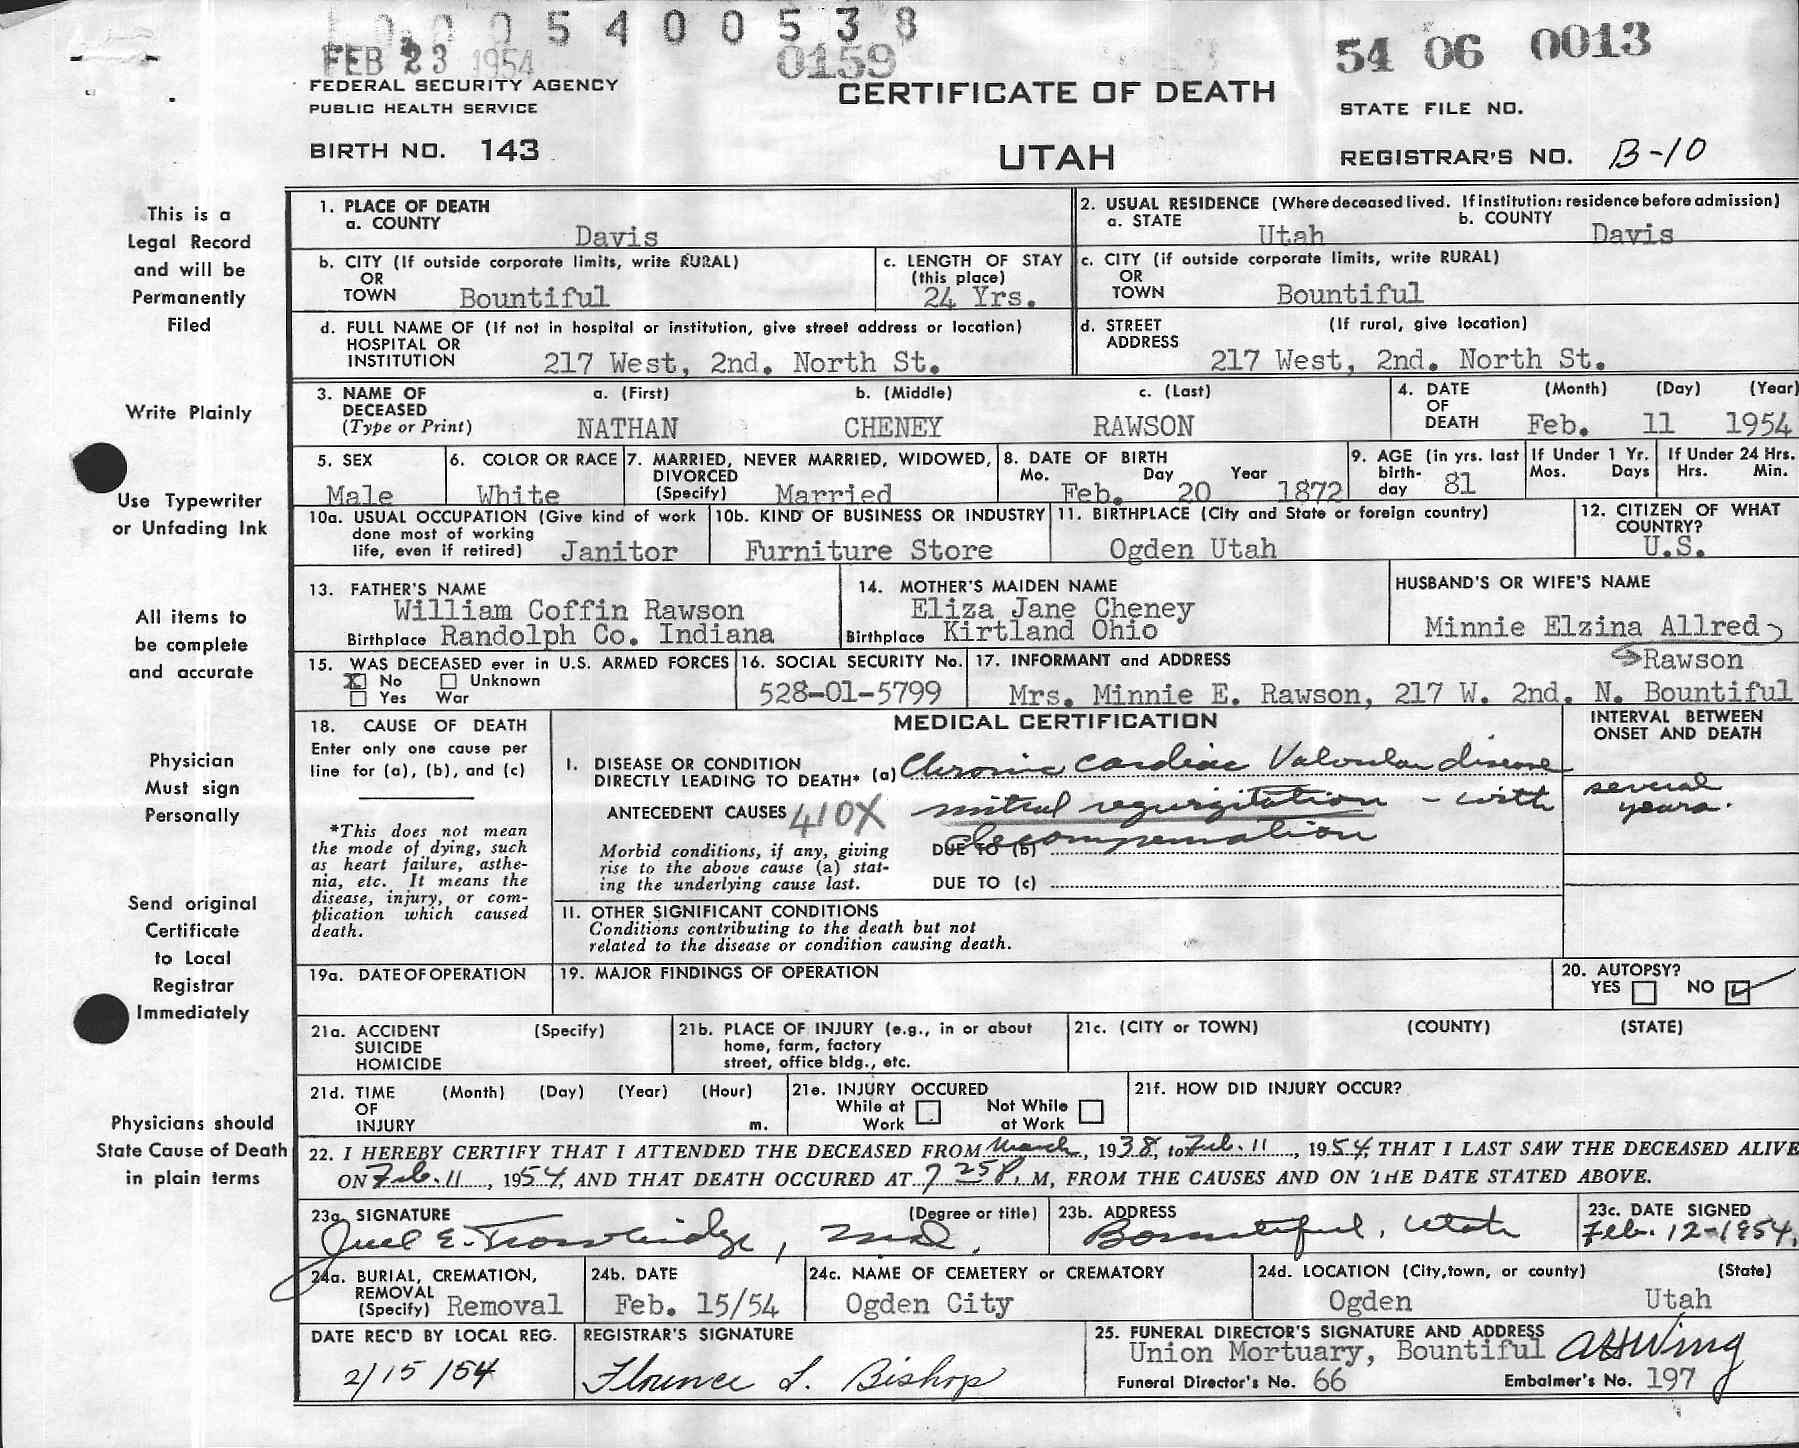 0 0 0 5 4 0 0 5 3 8
FEB 23 1954
0159
54 06 0013
FEDERAL SECURITY AGENCY
PUBLIC HEALTH SERVICE
CERTIFICATE OF DEATH
STATE FILE NO.
BIRTH NO. 143
UTAH
REGISTRAR'S NO. B-10
This is a
Legal Record
and will be
Permanently
Filed
Write Plainly
Use Typewriter
or Unfading Ink
All items to
be complete
and accurate
Physician
Must sign
Personally
Send original
Certificate
to Local
Registrar
Immediately
Physicians should
State Cause of Death
in plain terms
1. PLACE OF DEATH
a. COUNTY Davis
2. USUAL RESIDENCE (Where deceased lived. If institution: residence before admission)
a. STATE Utah b. COUNTY Davis
b. CITY (If outside corporate limits, write RURAL)
OR
TOWN Bountiful
c. LENGTH OF STAY
(this place)
24 Yrs.
c. CITY (if outside corporate limits, write RURAL)
OR
TOWN Bountiful
d. FULL NAME OF (If not in hospital or institution, give street address or location)
HOSPITAL OR
INSTITUTION 217 West, 2nd. North St.
d. STREET (If rural, give location)
ADDRESS
217 West, 2nd. North St.
3. NAME OF a. (First) b. (Middle) c. (Last)
DECEASED
(Type or Print) NATHAN CHENEY RAWSON
4. DATE (Month) (Day) (Year)
OF
DEATH Feb. 11 1954
5. SEX
Male
6. COLOR OR RACE
White
7. MARRIED, NEVER MARRIED, WIDOWED,
DIVORCED
(Specify) Married
8. DATE OF BIRTH
Mo. Day Year
Feb. 20 1872
9. AGE (in yrs. last
birth-
day 81
If Under 1 Yr.
Mos. Days
If Under 24 Hrs.
Hrs. Min.
10a. USUAL OCCUPATION (Give kind of work
done most of working
life, even if retired) Janitor
10b. KIND OF BUSINESS OR INDUSTRY
Furniture Store
11. BIRTHPLACE (City and State or foreign country)
Ogden Utah
12. CITIZEN OF WHAT
COUNTRY?
U.S.
13. FATHER'S NAME
William Coffin Rawson
Birthplace Randolph Co. Indiana
14. MOTHER'S MAIDEN NAME
Eliza Jane Cheney
Birthplace Kirtland Ohio
HUSBAND'S OR WIFE'S NAME
Minnie Elzina Allred
Rawson
15. WAS DECEASED ever in U.S. ARMED FORCES
X No Unknown
Yes War
16. SOCIAL SECURITY No.
528-01-5799
17. INFORMANT and ADDRESS
Mrs. Minnie E. Rawson, 217 W. 2nd. N. Bountiful
18. CAUSE OF DEATH
Enter only one cause per
line for (a), (b), and (c)
*This does not mean
the mode of dying, such
as heart failure, asthe-
nia, etc. It means the
disease, injury, or com-
plication which caused
death.
MEDICAL CERTIFICATION
INTERVAL BETWEEN
ONSET AND DEATH
I. DISEASE OR CONDITION
DIRECTLY LEADING TO DEATH* (a) Chronic Cardiac Valvular disease
several
years.
ANTECEDENT CAUSES 410X mitral regurgitation - with
decompensation
Morbid conditions, if any, giving
rise to the above cause (a) stat-
ing the underlying cause last.
DUE TO (b)
DUE TO (c)
II. OTHER SIGNIFICANT CONDITIONS
Conditions contributing to the death but not
related to the disease or condition causing death.
19a. DATE OF OPERATION
19. MAJOR FINDINGS OF OPERATION
20. AUTOPSY?
YES NO ✓
21a. ACCIDENT (Specify)
SUICIDE
HOMICIDE
21b. PLACE OF INJURY (e.g., in or about
home, farm, factory
street, office bldg., etc.
21c. (CITY or TOWN) (COUNTY) (STATE)
21d. TIME (Month) (Day) (Year) (Hour)
OF
INJURY m.
21e. INJURY OCCURED
While at Work
Not While at Work
21f. HOW DID INJURY OCCUR?
22. I HEREBY CERTIFY THAT I ATTENDED THE DECEASED FROM March, 1938, to Feb. 11, 1954, THAT I LAST SAW THE DECEASED ALIVE
ON Feb. 11, 1954, AND THAT DEATH OCCURED AT 7 25 P. M, FROM THE CAUSES AND ON THE DATE STATED ABOVE.
23a. SIGNATURE (Degree or title)
Juel E. Trowbridge, MD.
23b. ADDRESS
Bountiful, Utah
23c. DATE SIGNED
Feb. 12-1954.
24a. BURIAL, CREMATION,
REMOVAL
(Specify) Removal
24b. DATE
Feb. 15/54
24c. NAME OF CEMETERY or CREMATORY
Ogden City
24d. LOCATION (City, town, or county) (State)
Ogden Utah
DATE REC'D BY LOCAL REG.
2/15/54
REGISTRAR'S SIGNATURE
Florence L. Bishop
25. FUNERAL DIRECTOR'S SIGNATURE AND ADDRESS
Union Mortuary, Bountiful
Funeral Director's No. 66 Embalmer's No. 197